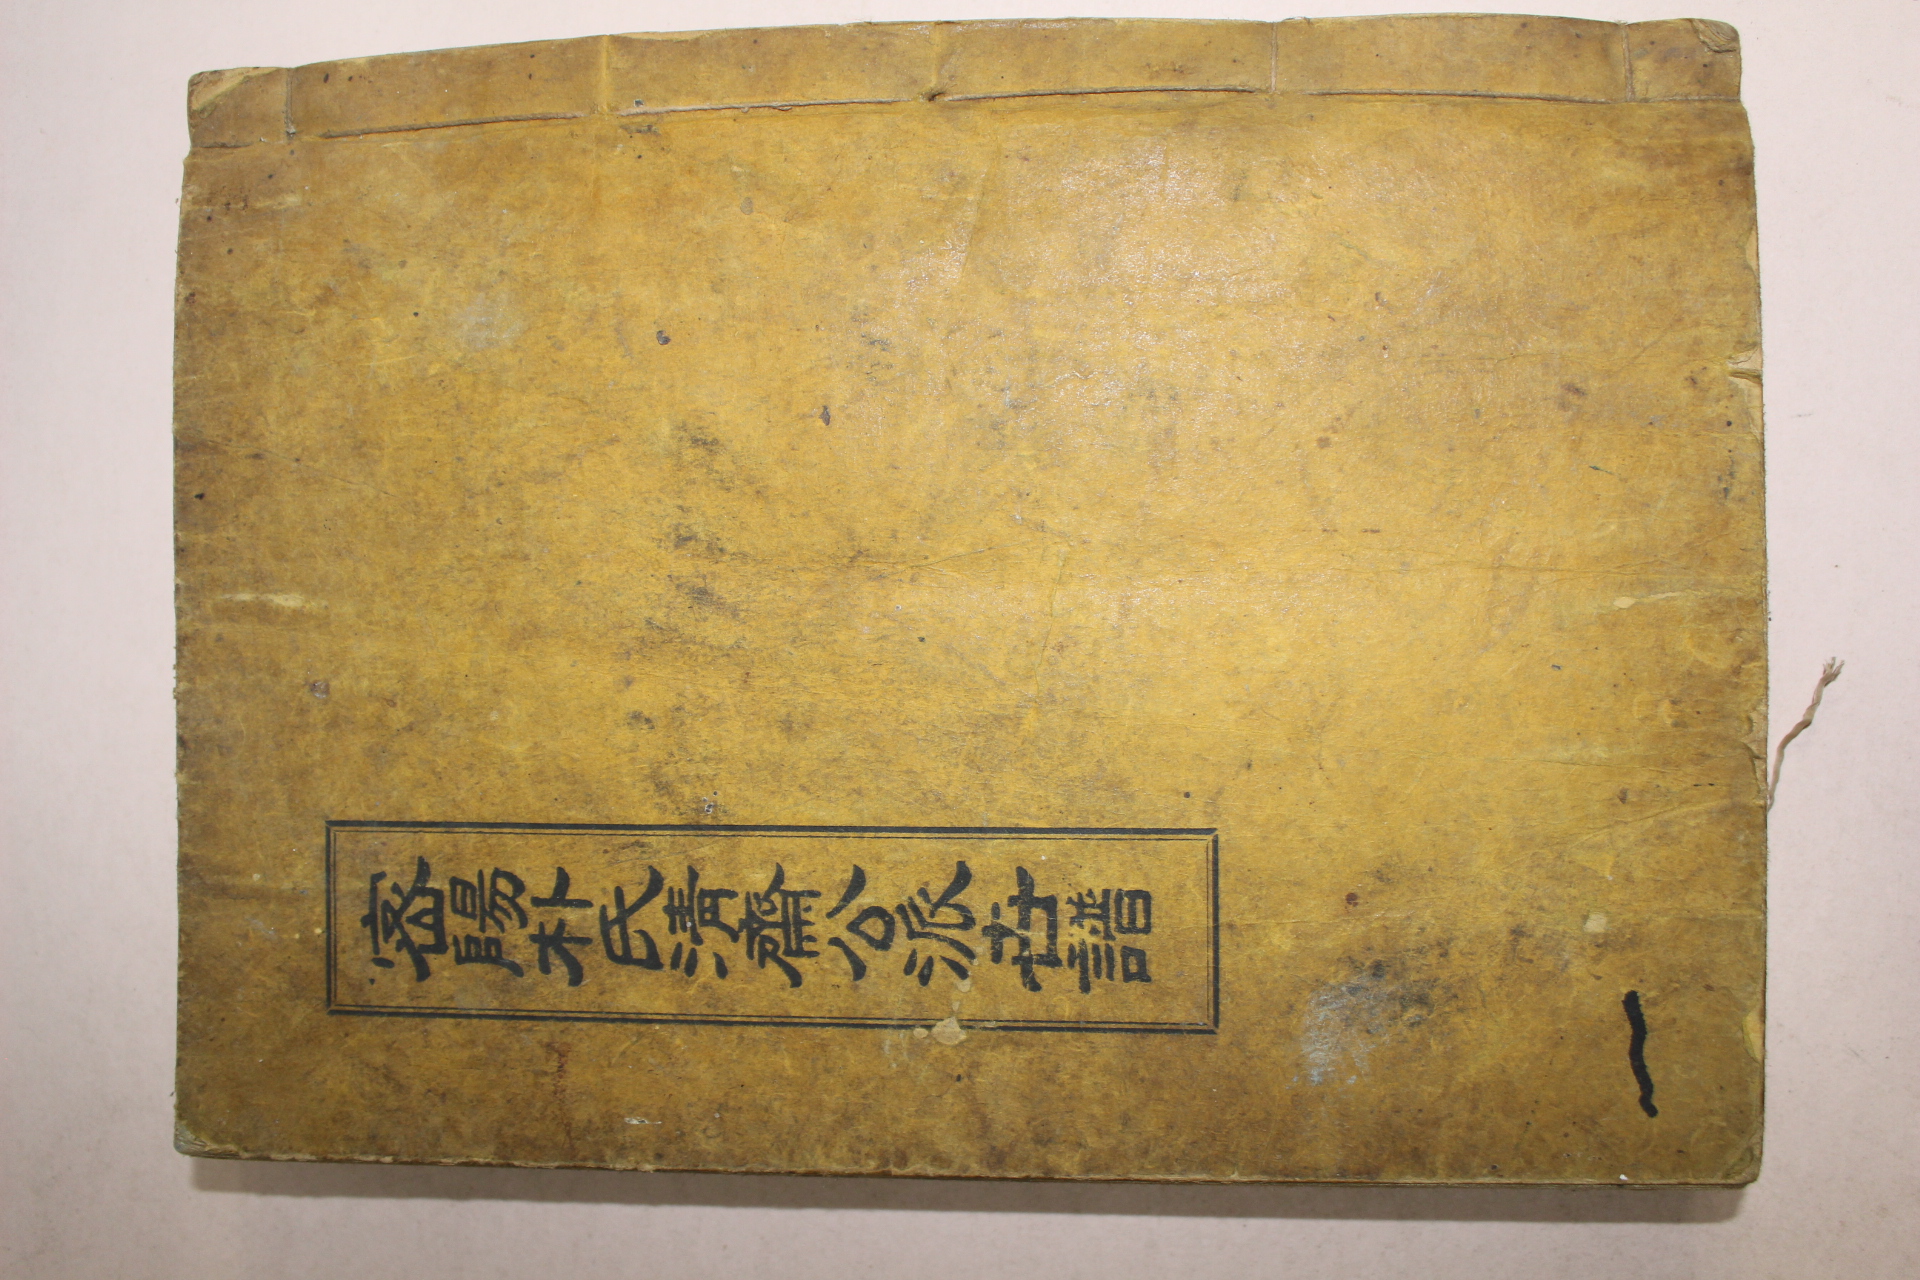 密陽朴氏淸齋公派世譜
一